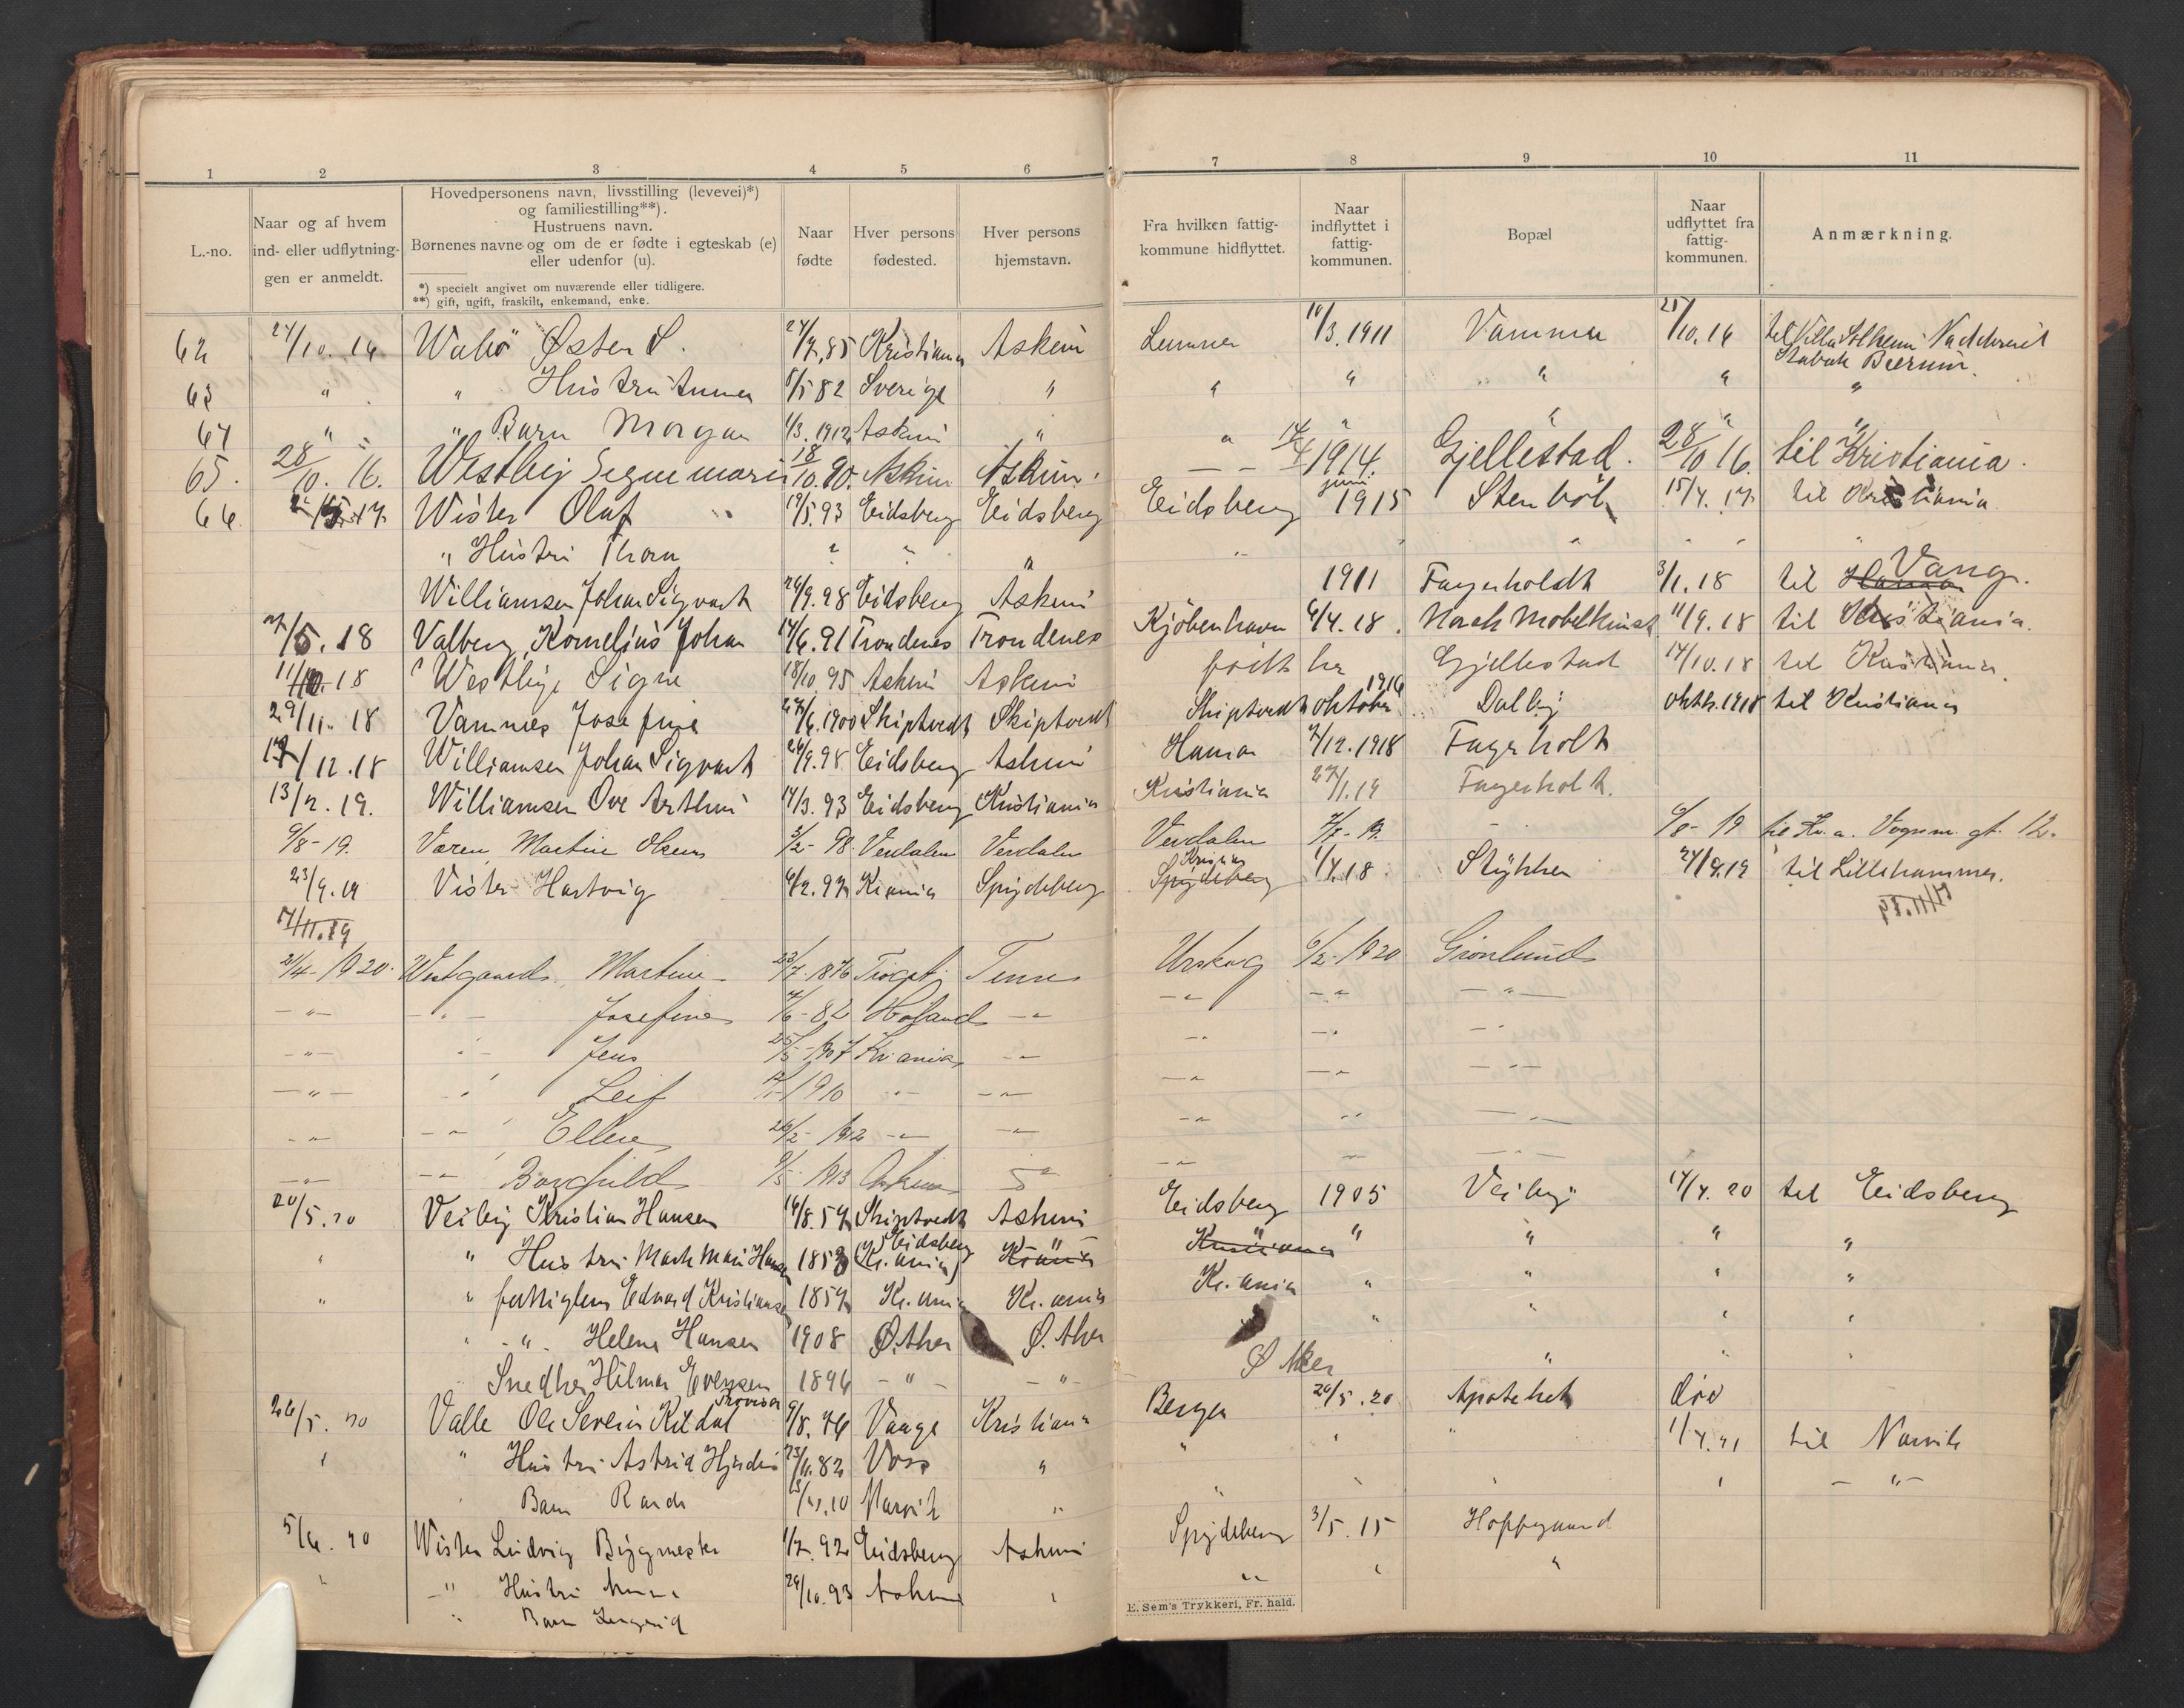 1 2 3 4 5 6 7 8 9 10 11
L.-no.
Naar og af hvem
ind- eller udflytnin-
gen er anmeldt.
Hovedpersonens navn, livsstilling (levevei)*)
og familiestilling**).
Hustruens navn.
Børnenes navne og om de er fødte i egteskab (e)
eller udenfor (u).
*) specielt angivet om nuværende eller tidligere.
**) gift, ugift, fraskilt, enkemand, enke.
Naar
fødte
Hver persons
fødested.
Hver persons
hjemstavn.
Fra hvilken fattig-
kommune hidflyttet.
Naar
indflyttet i
fattig-
kommunen.
Bopæl
Naar
udflyttet fra
fattig-
kommunen.
Anmærkning.
62 24/10. 16 Østen S. 85 Kristiania Askim 3. 1911 Vamma 25/10. 16 til Villa Solheim
Stabæk Bærum.
63 " " Hustru Anna 8/5 82 Sverige " " " " " "
64 " " Barn Morgan 1/3. 1912 Askim " " " " " "
65. 28/10. 16. Westby Signe marie 18/10. 90. Askim Askim. — – 1914. Gjellestad. 28/10 16. til Kristiania.
66 Wister Olaf 19/5. 93 Eidsberg Eidsberg Eidsberg juni 1915 Stenbøl 15/4. 17 til Kristiania
" Hustru Thora " " " " " " " "
Williamsen Johan Sigvart 26/9. 98 Eidsberg Askim 1911 Fagerholdt 3/1. 18 til Hamar Vang.
27/5. 18 Valberg Kornelius Johan 14/6. 91 Trondenes Trondenes Kjøbenhavn 6/4. 18. Norsk Møbelkunst 11/9. 18 til Kristiania.
18 Westbye Signe 18/10. 95 Askim Askim født her Gjellestad 14/10. 18 til Kristiania.
29/11. 18 Vamnes Josefine 1900 Skiptvedt Skiptvedt Skiptvedt oktober 1916 Dalby oktb. 1918 til Kristiania
17/12. 18 Williamsen Johan Sigvart 26/9. 98 Eidsberg Askim Hamar 7/12. 1918 Fagerholt
13/2. 19. Williamsen Ove Arthur 14/3. 93 Eidsberg Kristiania Kristiania 27/1. 19 Fagerholt.
9/8 - 19. Martin Olsen 3/2 - 98 Verdalen Verdalen Verdalen - 6/8 - 19 til Kr.a. Vognm. gt. 12.
23/9. 19 Vister Hartvig 6/2. 97 Kr.ania Spydeberg Spydeberg Kr.ania 1/4. 18. Stykket 24/9. 19 til Lillehammer.
17/11. 19
21/4 - 1920. Westgaard, Martin 23/7 1876 Trøgst. Urskog 6/2 - 1920 Grønlund
— " — — " — Josefine 4/6 - 82 Høland — " — " — " — " —
— " — " — Jens 25/5 - 1907 Kr.ania — " — " — " — "
— " — " Leif 1910 — " — " — " — " — " —
— " — " Ellen 26/2 - 1912 — " — " — " — " — "
— " — " Borghild 9/5 - 1913 Askim " — " — " — " —
20/5. 20 Veiby Kristian Hansen 16/8. 57 Skiptvedt Askim Eidsberg 1905 Veiby 14/4. 20 til Eidsberg
" " Hustru Mari Hansen 1853 Eidsberg (Kr.ania) Kr.ania Kristiania " " " "
" " fattiglem Edvard Kristiansen 1857 Kr.ania Kr.ania Kr.ania " " " "
" " Helene Hansen 1908 Ø. Aker Ø. Aker " " " "
Snedker Hilmar Evensen 1896 — " — — " — Ø Aker " " "
26/5. 20 Valle Ole Severin Kildal Provisor 9/8. 76 Vaage Kristiania Bergen 20/5. 20 Apotheket død
" " Hustru Astrid Hjørdis 23/11. 82 Voss " " " " 1/4. 21 til Narvik
" Barn Randi 10 Narvik " " " " " — " —
5/6. 20 Wister Ludvig Bygmester 1/2. 92 Eidsberg Askim Spydeberg 3/5. 15 Hoffgaard
" — " Hustru Anna 26/10. 93 Askim " " " "
" Barn Ingrid
E. Sem's Trykkeri, Fr. hald.